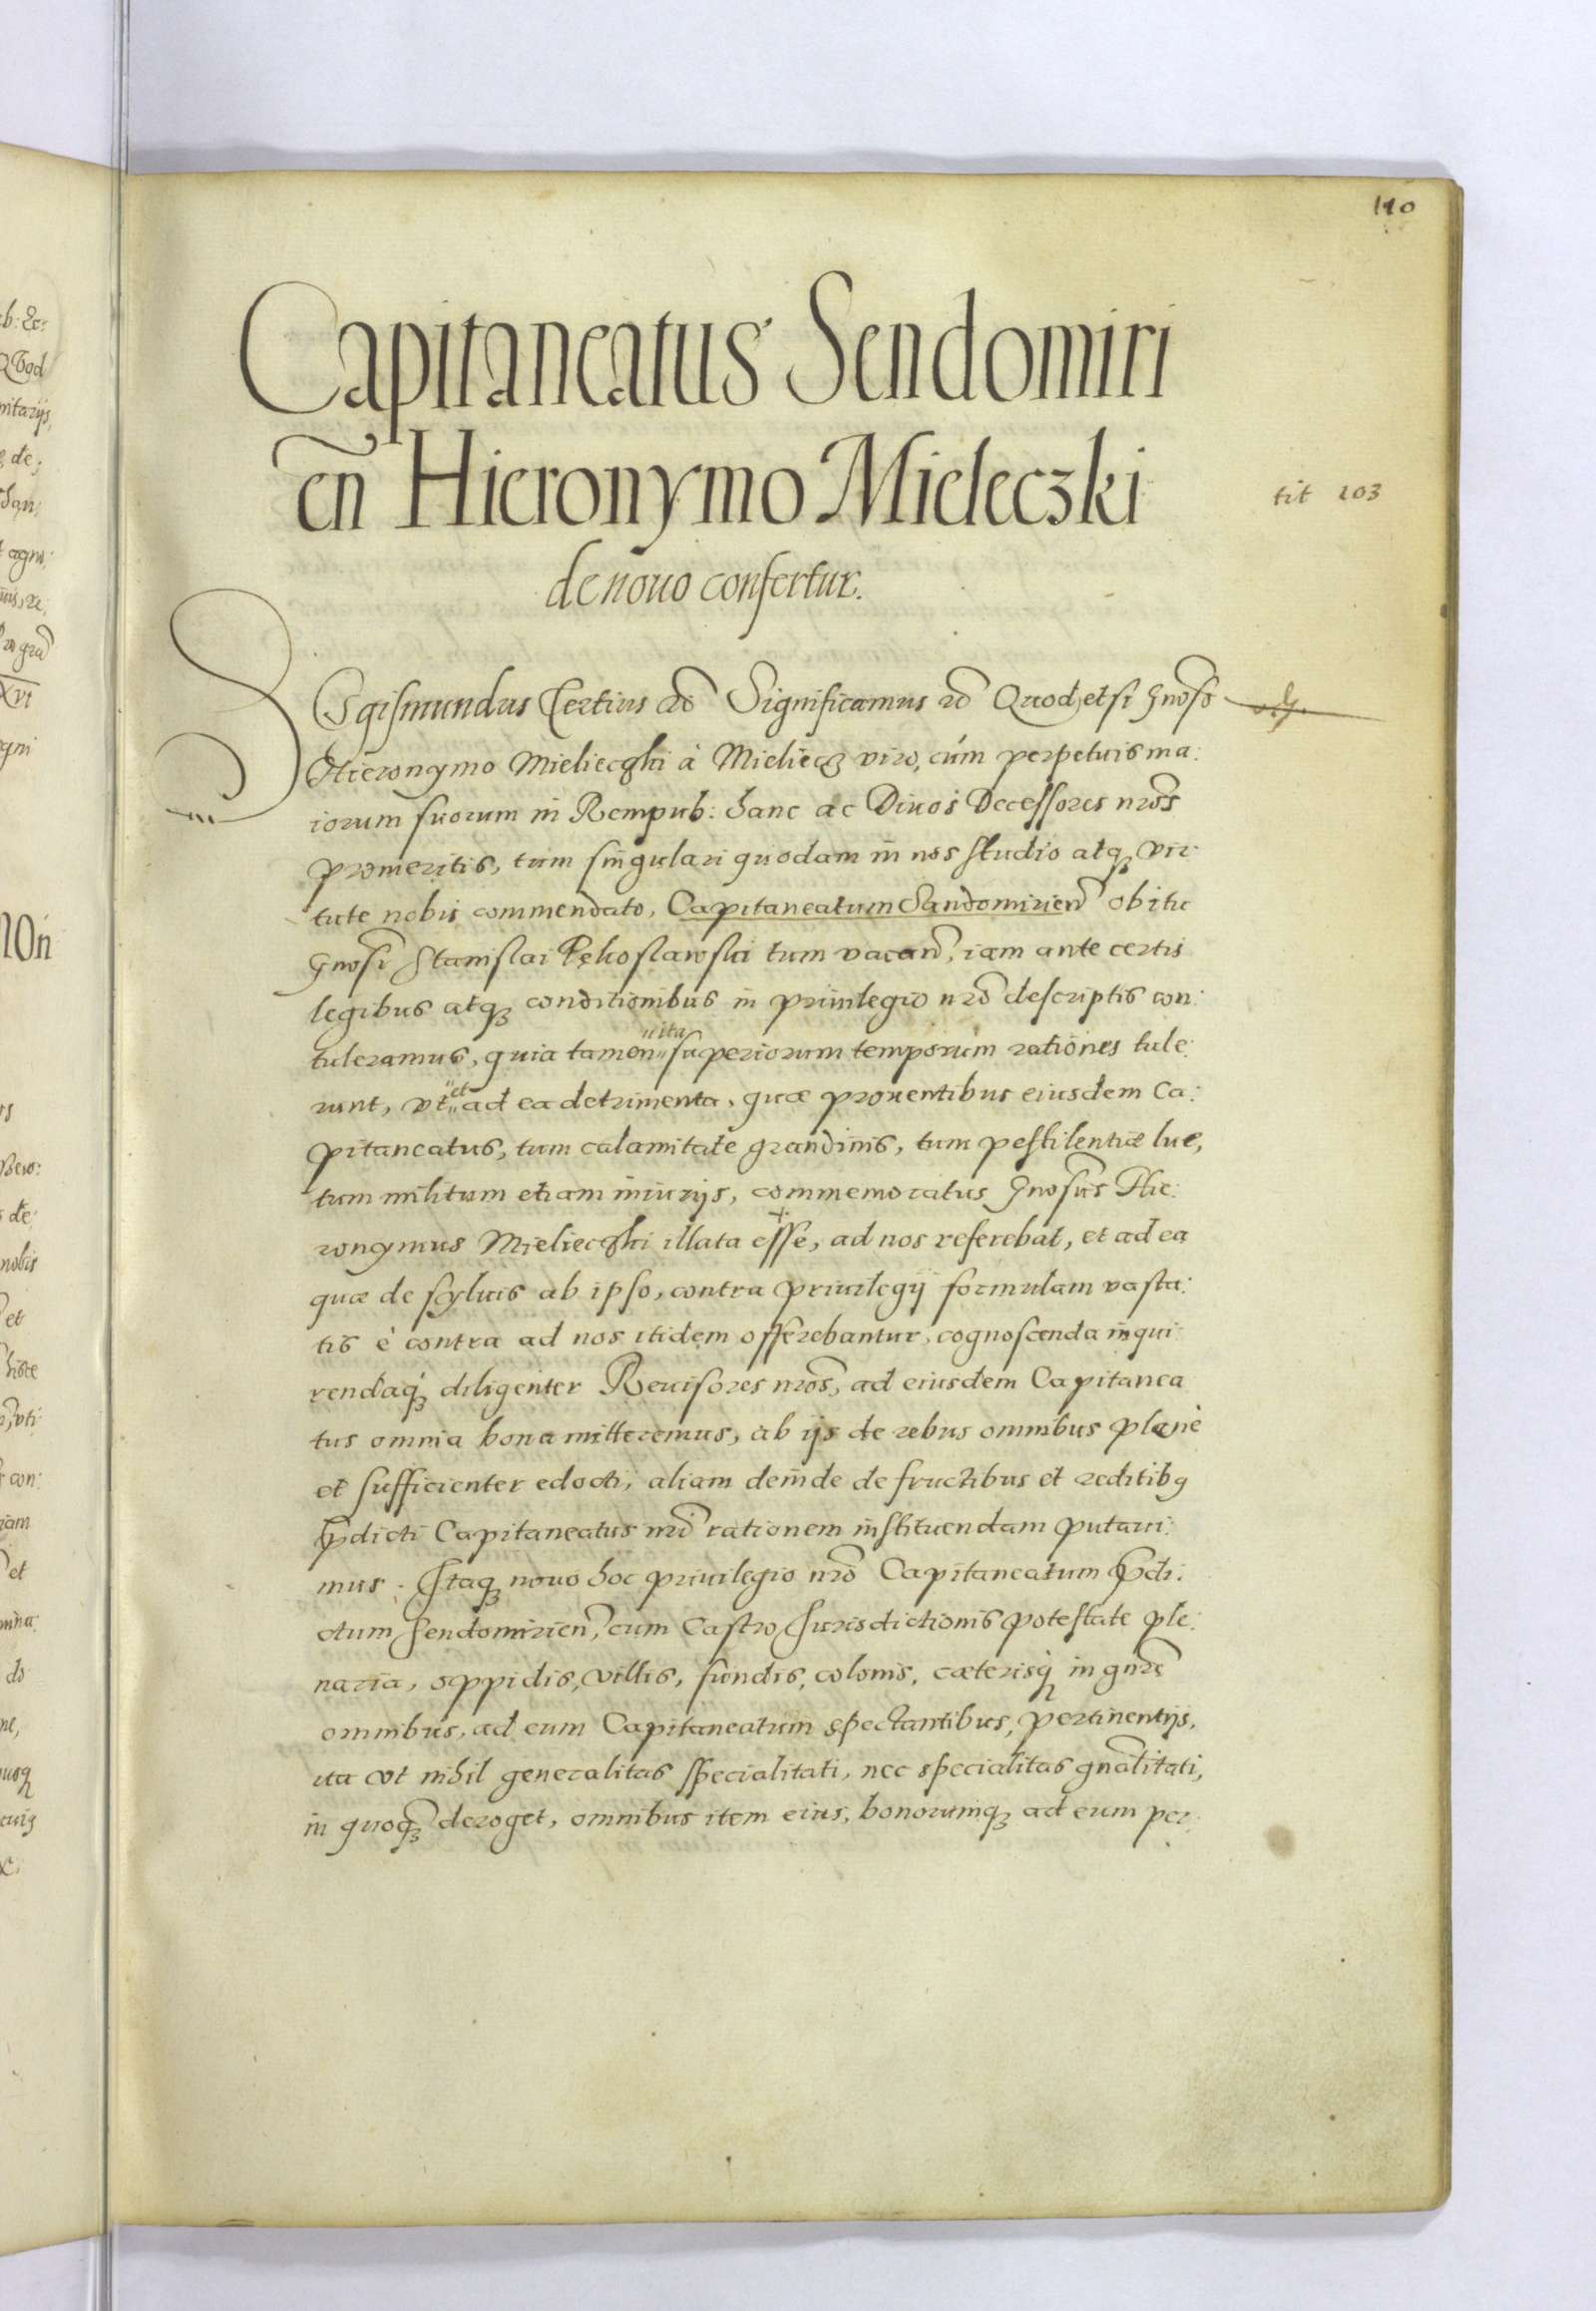 110
Capitaneatus Sendomiri
en̄ Hieronymo Mieleczki
tit 103
de nouo confertur.
Sigismundus Tertius &c̄ Significamus &c̄ Quod, etsi Gnōso
Hieronymo Mielieczki à Mieliecz viro, cùm perpetuis ma:
iorum suorum in Rempub: hanc ac Diuos Decessores nr̄os
promeritis, tum singulari quodam in nos studio atq; vir:
tute nobis commendato, Capitaneatum Sandomirien̄ obitu
Gnōsi Stanislai Pękoslawski tum vacan̄, iam ante certis
legibus atq; conditionibus in priuilegio nr̄o descriptis con:
tuleramus, quia tamen "ita" superiorum temporum rationes tule:
runt, vt "et" ad ea detrimenta, quæ prouentibus eiusdem Ca:
pitaneatus, tum calamitate grandinis, tum pestilentiæ lue,
tum militum etiam iniurijs, commemoratus Gnōsus Hie:
ronymus Mielieczki illata esse, ad nos referebat, et ad ea
quæ de syluis ab ipso, contra priuilegij formulam vasta:
tis è contra ad nos itidem offerebantur, cognoscenda inqui:
rendaq; diligenter Reuisores nr̄os, ad eiusdem Capitanea
tus omnia bona mitteremus, ab ijs de rebus omnibus planè
et sufficienter edocti, aliam deinde de fructibus et reditibꝰ
p̄dicti Capitaneatus nr̄i rationem instituendam putaui:
mus. Itaq; nouo hoc priuilegio nr̄o Capitaneatum p̄di:
ctum Sendomirien̄, cum Castro, Jurisdictionis potestate ple:
naria, oppidis, villis, fundis, colonis, cæterisq; in gn̄re
omnibus, ad eum Capitaneatum spectantibus, pertinentijs,
ita vt nihil generalitas specialitati, nec specialitas gn̄alitati,
in quoq̄; deroget, omnibus item eius, bonorumq; ad eum per: